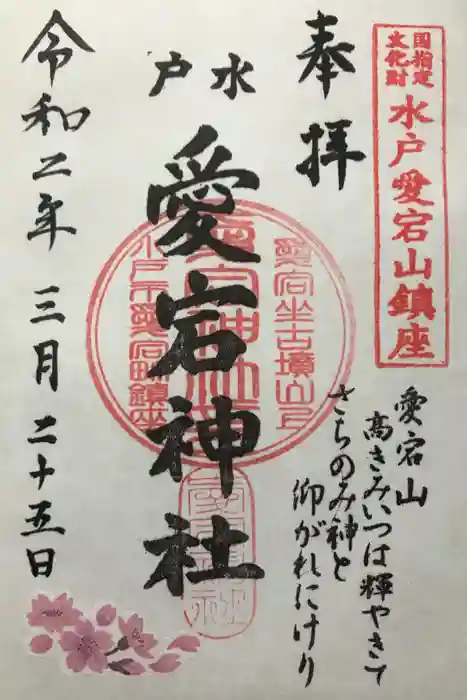 国指定
文化財
水戸愛宕山鎮座
奉拝
愛宕山
高きみいつは輝やきて
さらのみ神と
仰がれにけり
水戸
愛宕神社
愛宕坐古墳山上
愛宕神社
水戸市愛宕町鎮座
令和二年 三月 二十五日